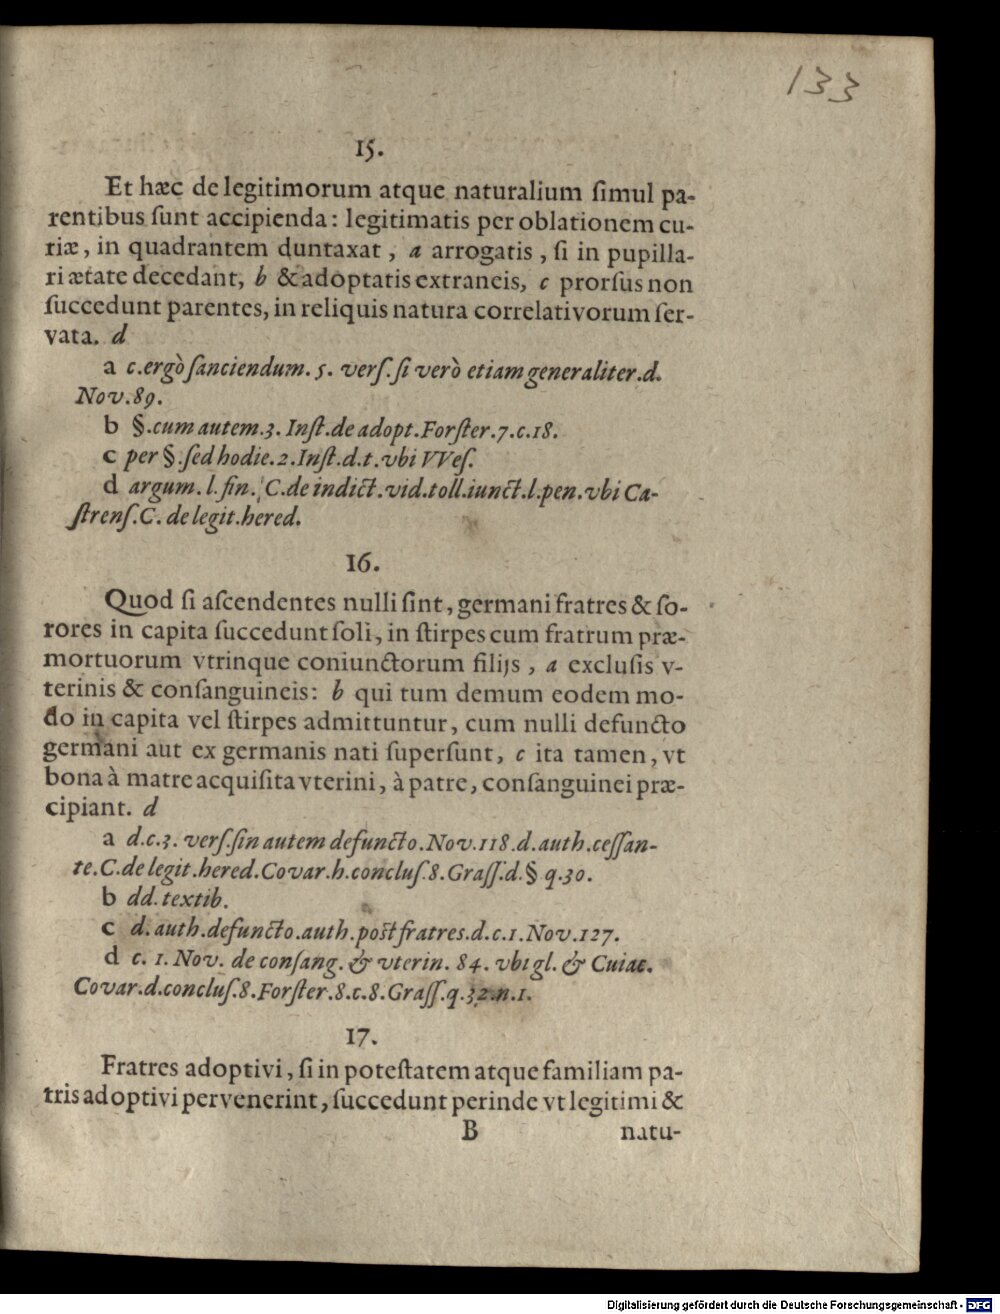 133
15.
Et hæc de legitimorum atque naturalium ſimul pa-
rentibus ſunt accipienda: legitimatis per oblationem cu-
riæ, in quadrantem duntaxat, a arrogatis, ſi in pupilla-
ri ætate decedant, b & adoptatis extraneis, c prorſus non
ſuccedunt parentes, in reliquis natura correlativorum ſer-
vata. d
a c. ergò ſanciendum. 5. verſ. ſi verò etiam generaliter. d.
Nov. 89.
b §. cum autem. 3. Inſt. de adopt. Forſter. 7. c. 18.
c per §. ſed hodie. 2. Inſt. d. t. vbi VVeſ.
d argum. l. fin. C. de indict. vid. toll. iunct. l. pen. vbi Ca-
ſtrenſ. C. de legit. hered.
16.
Quod ſi aſcendentes nulli ſint, germani fratres & ſo-
rores in capita ſuccedunt ſoli, in ſtirpes cum fratrum præ-
mortuorum vtrinque coniunctorum filijs, a excluſis v-
terinis & conſanguineis: b qui tum demum eodem mo-
do in capita vel ſtirpes admittuntur, cum nulli defuncto
germani aut ex germanis nati ſuperſunt, c ita tamen, vt
bona à matre acquiſita vterini, à patre, conſanguinei præ-
cipiant. d
a d. c. 3. verſ. ſin autem defuncto. Nov. 118. d. auth. ceſſan-
te. C. de legit. hered. Covar. h. concluſ. 8. Graſſ. d. § q. 30.
b dd. textib.
c d. auth. defuncto. auth. poſt fratres. d. c. 1. Nov. 127.
d c. 1. Nov. de conſang. & vterin. 84. vbi gl. & Cuiac.
Covar. d. concluſ. 8. Forſter. 8. c. 8. Graſſ. q. 32. n. 1.
17.
Fratres adoptivi, ſi in poteſtatem atque familiam pa-
tris adoptivi pervenerint, ſuccedunt perinde vt legitimi &
B natu-
Digitalisierung gefördert durch die Deutsche Forschungsgemeinschaft - DFG